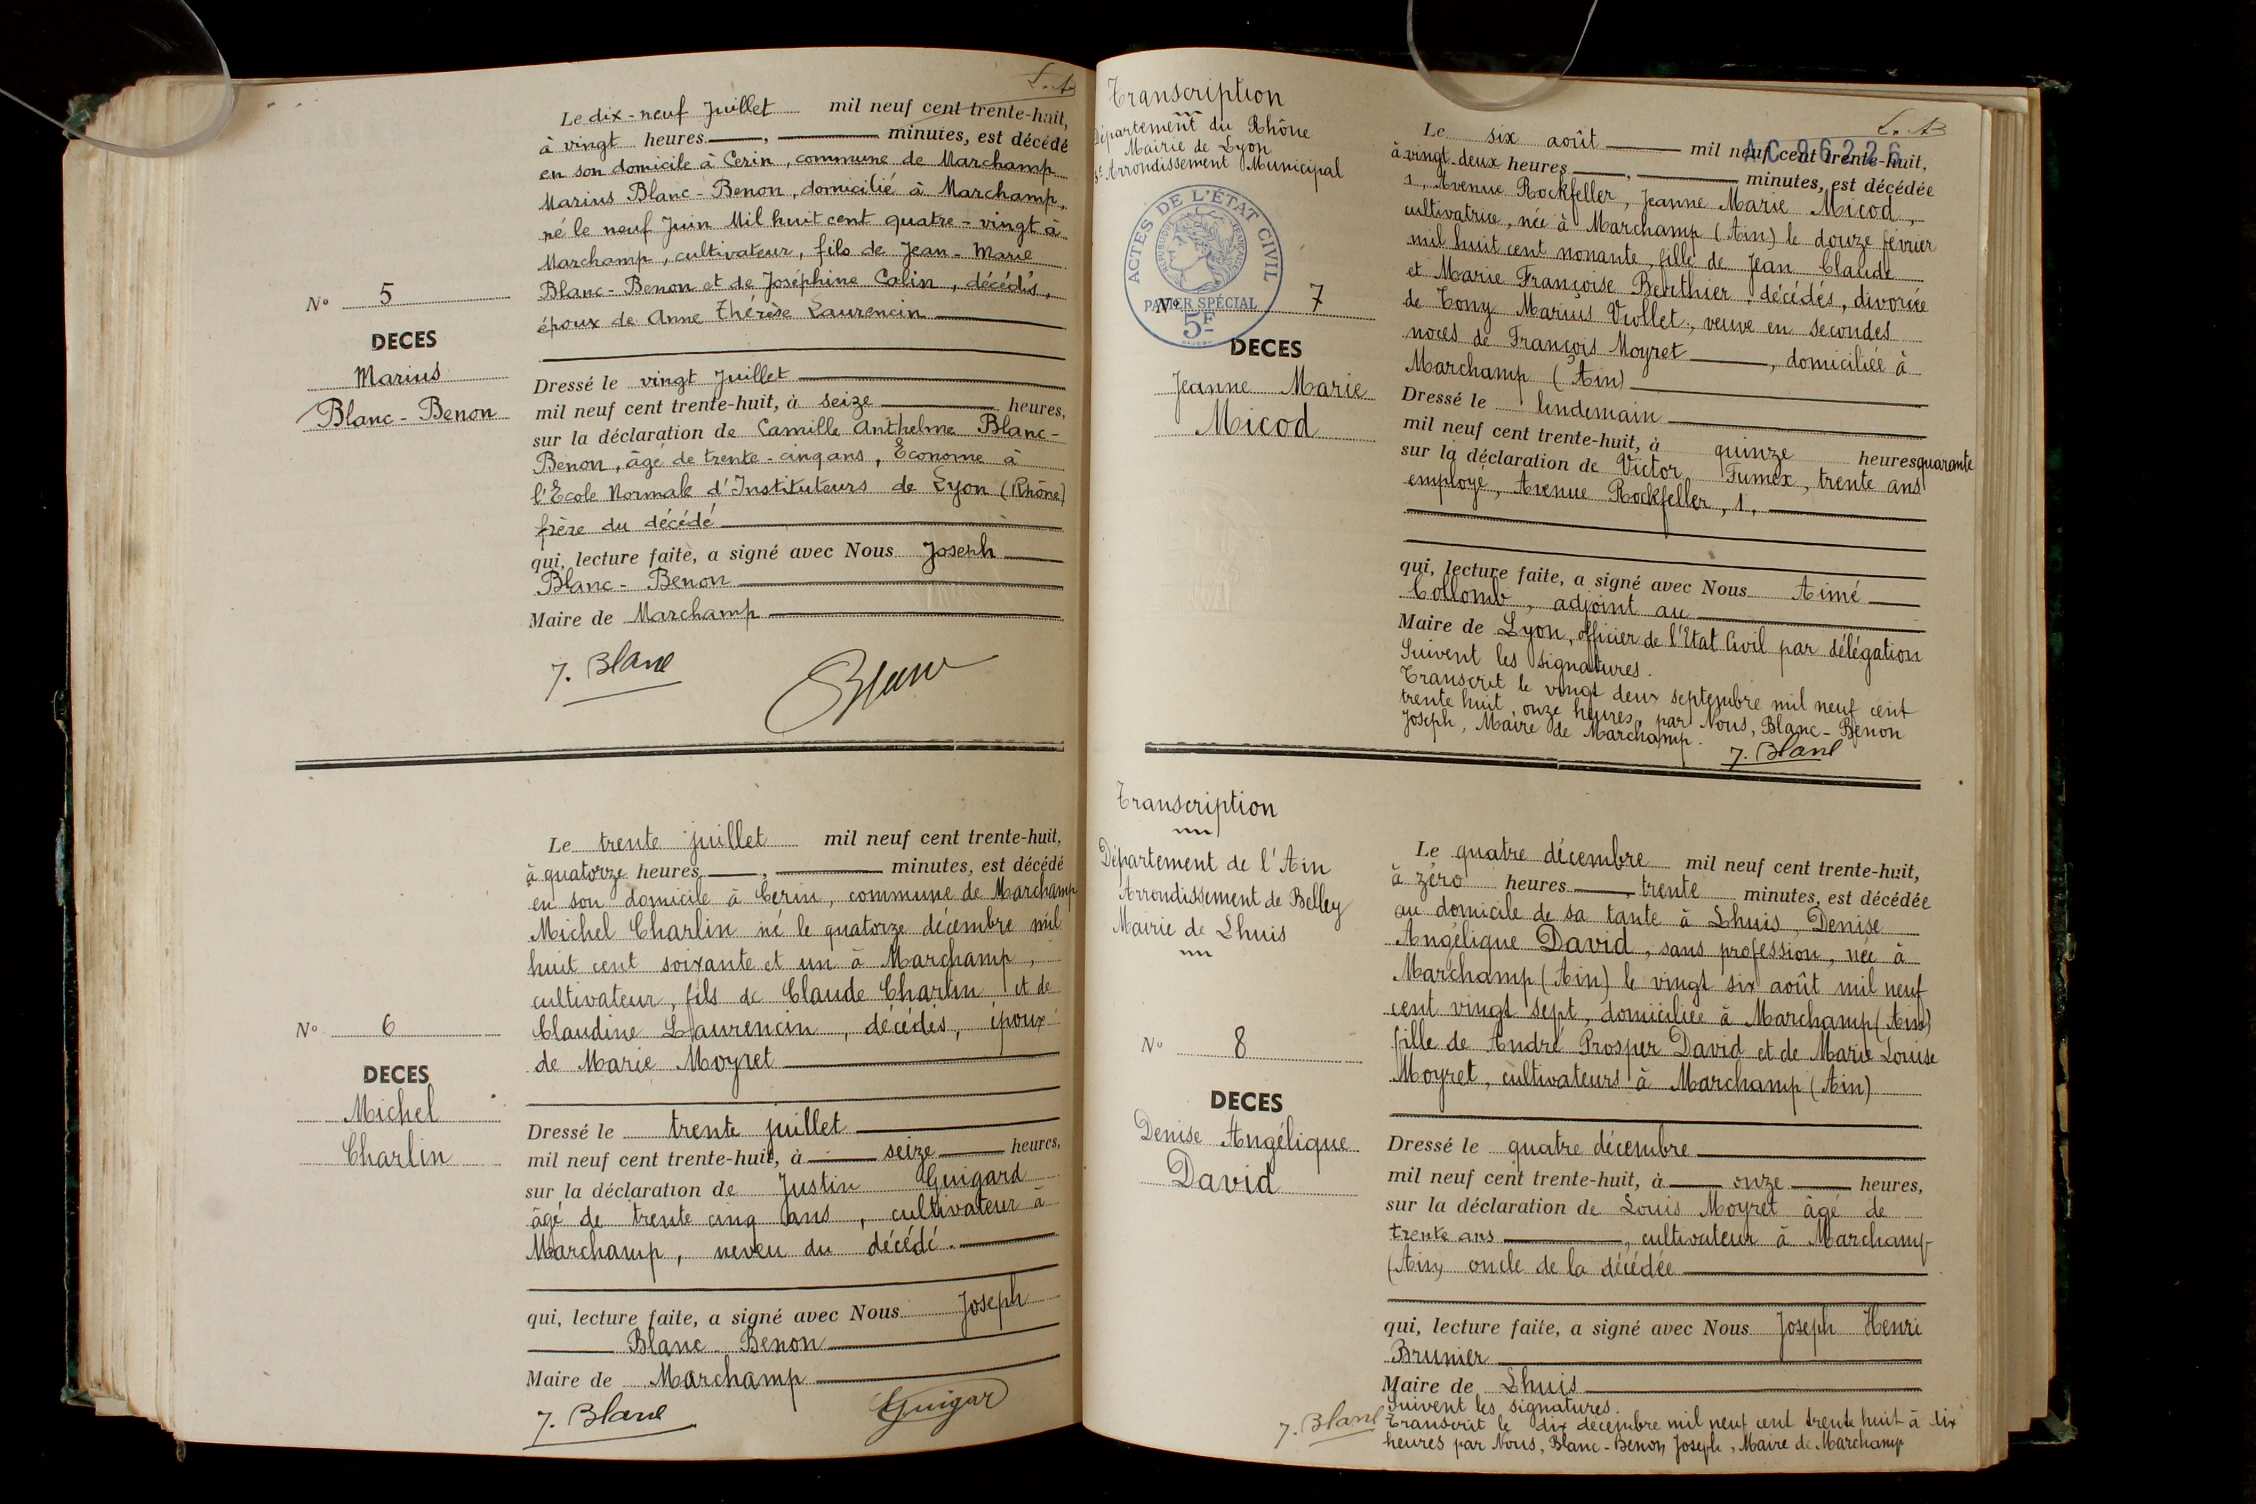 L. B
Le dix-neuf Juillet mil neuf cent trente-huit,
à vingt heures, minutes, est décédé
en son domicile à Cerin, commune de Marchamp
Marius Blanc-Benon, domicilié à Marchamp,
né le neuf Juin Mil huit cent quatre-vingt à
Marchamp, cultivateur, fils de Jean-Marie
Blanc-Benon et de Joséphine Colin, décédés,
époux de Anne Thérèse Laurencin
Nº 5
DECES
Marius
Blanc-Benon
Dressé le vingt Juillet
mil neuf cent trente-huit, à seize heures,
sur la déclaration de Camille Anthelme Blanc-
Benon, âgé de trente-cinq ans, Econome à
l'Ecole Normale d'Instituteurs de Lyon (Rhône)
frère du décédé
qui, lecture faite, a signé avec Nous Joseph
Blanc-Benon
Maire de Marchamp
J. Blanc
Le trente juillet mil neuf cent trente-huit,
à quatorze heures, minutes, est décédé
en son domicile à Cerin, commune de Marchamp
Michel Charlin né le quatorze décembre mil
huit cent soixante et un à Marchamp,
cultivateur, fils de Claude Charlin et de
Claudine Laurencin, décédés, époux
de Marie Moyret
Nº 6
DECES
Michel
Charlin
Dressé le trente juillet
mil neuf cent trente-huit, à seize heures,
sur la déclaration de Justin Guigard
âgé de trente cinq ans, cultivateur à
Marchamp, neveu du décédé.
qui, lecture faite, a signé avec Nous Joseph
Blanc Benon
Maire de Marchamp
J. Blanc
Guigar
Transcription
Département du Rhône
Mairie de Lyon
Arrondissement Municipal
ACTES DE L'ÉTAT CIVIL
RÉPUBLIQUE FRANÇAISE
PAPIER SPÉCIAL
5F
Nº 7
DECES
Jeanne Marie
Micod
L. B
AC 96226
Le six août mil neuf cent trente-huit,
à vingt deux heures, minutes, est décédée
1, Avenue Rockfeller, Jeanne Marie Micod,
cultivatrice, née à Marchamp (Ain) le douze février
mil huit cent nonante, fille de Jean Claude
et Marie Françoise Berthier, décédés, divorcée
de Tony Marius Viollet, veuve en secondes
noces de François Moyret, domiciliée à
Marchamp (Ain)
Dressé le lendemain
mil neuf cent trente-huit, à quinze heures quarante
sur la déclaration de Victor Fumex, trente ans
employé, Avenue Rockfeller, 1,
qui, lecture faite, a signé avec Nous Aimé
Collomb, adjoint au
Maire de Lyon, officier de l'Etat Civil par délégation
Suivent les signatures.
Transcrit le vingt deux septembre mil neuf cent
trente huit, onze heures, par Nous, Blanc-Benon
Joseph, Maire de Marchamp.
J. Blanc
Transcription
Département de l'Ain
Arrondissement de Belley
Mairie de Lhuis
Nº 8
DECES
Denise Angélique
David
Le quatre décembre mil neuf cent trente-huit,
à zéro heures, trente minutes, est décédée
au domicile de sa tante à Lhuis, Denise
Angélique David, sans profession, née à
Marchamp (Ain) le vingt six août mil neuf
cent vingt sept, domiciliée à Marchamp (Ain)
fille de André Prosper David et de Marie Louise
Moyret, cultivateurs à Marchamp (Ain)
Dressé le quatre décembre
mil neuf cent trente-huit, à onze heures,
sur la déclaration de Louis Moyret âgé de
trente ans, cultivateur à Marchamp
(Ain) oncle de la décédée
qui, lecture faite, a signé avec Nous Joseph Henri
Brunier
Maire de Lhuis
Suivent les signatures.
Transcrit le dix décembre mil neuf cent trente huit à dix
heures par Nous, Blanc-Benon Joseph, Maire de Marchamp
J. Blanc